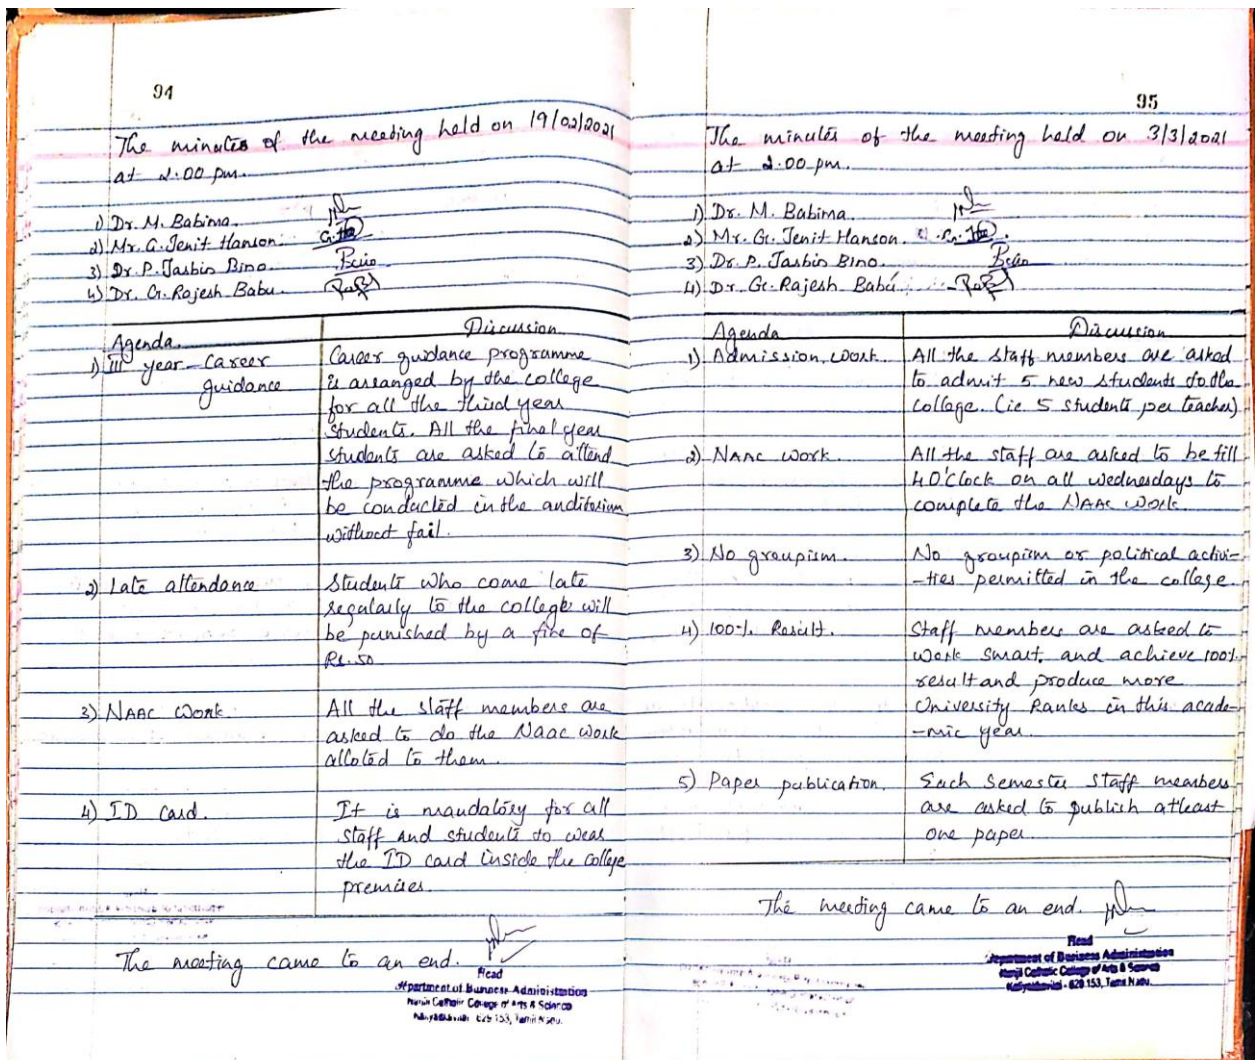 94
The minutes of the meeting held on 19/02/2021
at 2.00 pm.
1) Dr. M. Babima.
2) Mr. G. Jenit Hanson.
3) Dr P. Jasbin Bino. Bino
4) Dr. G. Rajesh Babu.
Agenda. Discussion
1) III year - Career Career guidance programme
guidance is arranged by the college
for all the third year
students. All the final year
students are asked to attend
the programme which will
be conducted in the auditorium
without fail.
2) Late attendance Students who come late
regularly to the college will
be punished by a fine of
Rs. 50
3) NAAC Work. All the staff members are
asked to do the Naac work
alloted to them.
4) ID Card. It is mandatory for all
staff and students to wear
the ID card inside the college
premises.
The meeting came to an end.
Head
Department of Business Administration
Nanjil Catholic College of Arts & Science
Kaliyakkavilai - 629 153, Tamil Nadu.
95
The minutes of the meeting held on 3/3/2021
at 2.00 pm.
1) Dr. M. Babima.
2) Mr. G. Jenit Hanson.
3) Dr. P. Jasbin Bino. Bino
4) Dr. G. Rajesh Babu.
Agenda Discussion
1) Admission work. All the staff members are asked
to admit 5 new students to the
college. (ie 5 students per teacher)
2) NAAC Work. All the staff are asked to be till
4 O'Clock on all wednesdays to
complete the NAAC Work.
3) No groupism. No groupism or political activi-
-ties permitted in the college.
4) 100% Result. Staff members are asked to
work smart, and achieve 100%
result and produce more
University Ranks in this acade-
-mic year.
5) Paper publication. Each Semester Staff members
are asked to publish atleast
one paper.
The meeting came to an end.
Head
Department of Business Administration
Nanjil Catholic College of Arts & Science
Kaliyakkavilai - 629 153, Tamil Nadu.